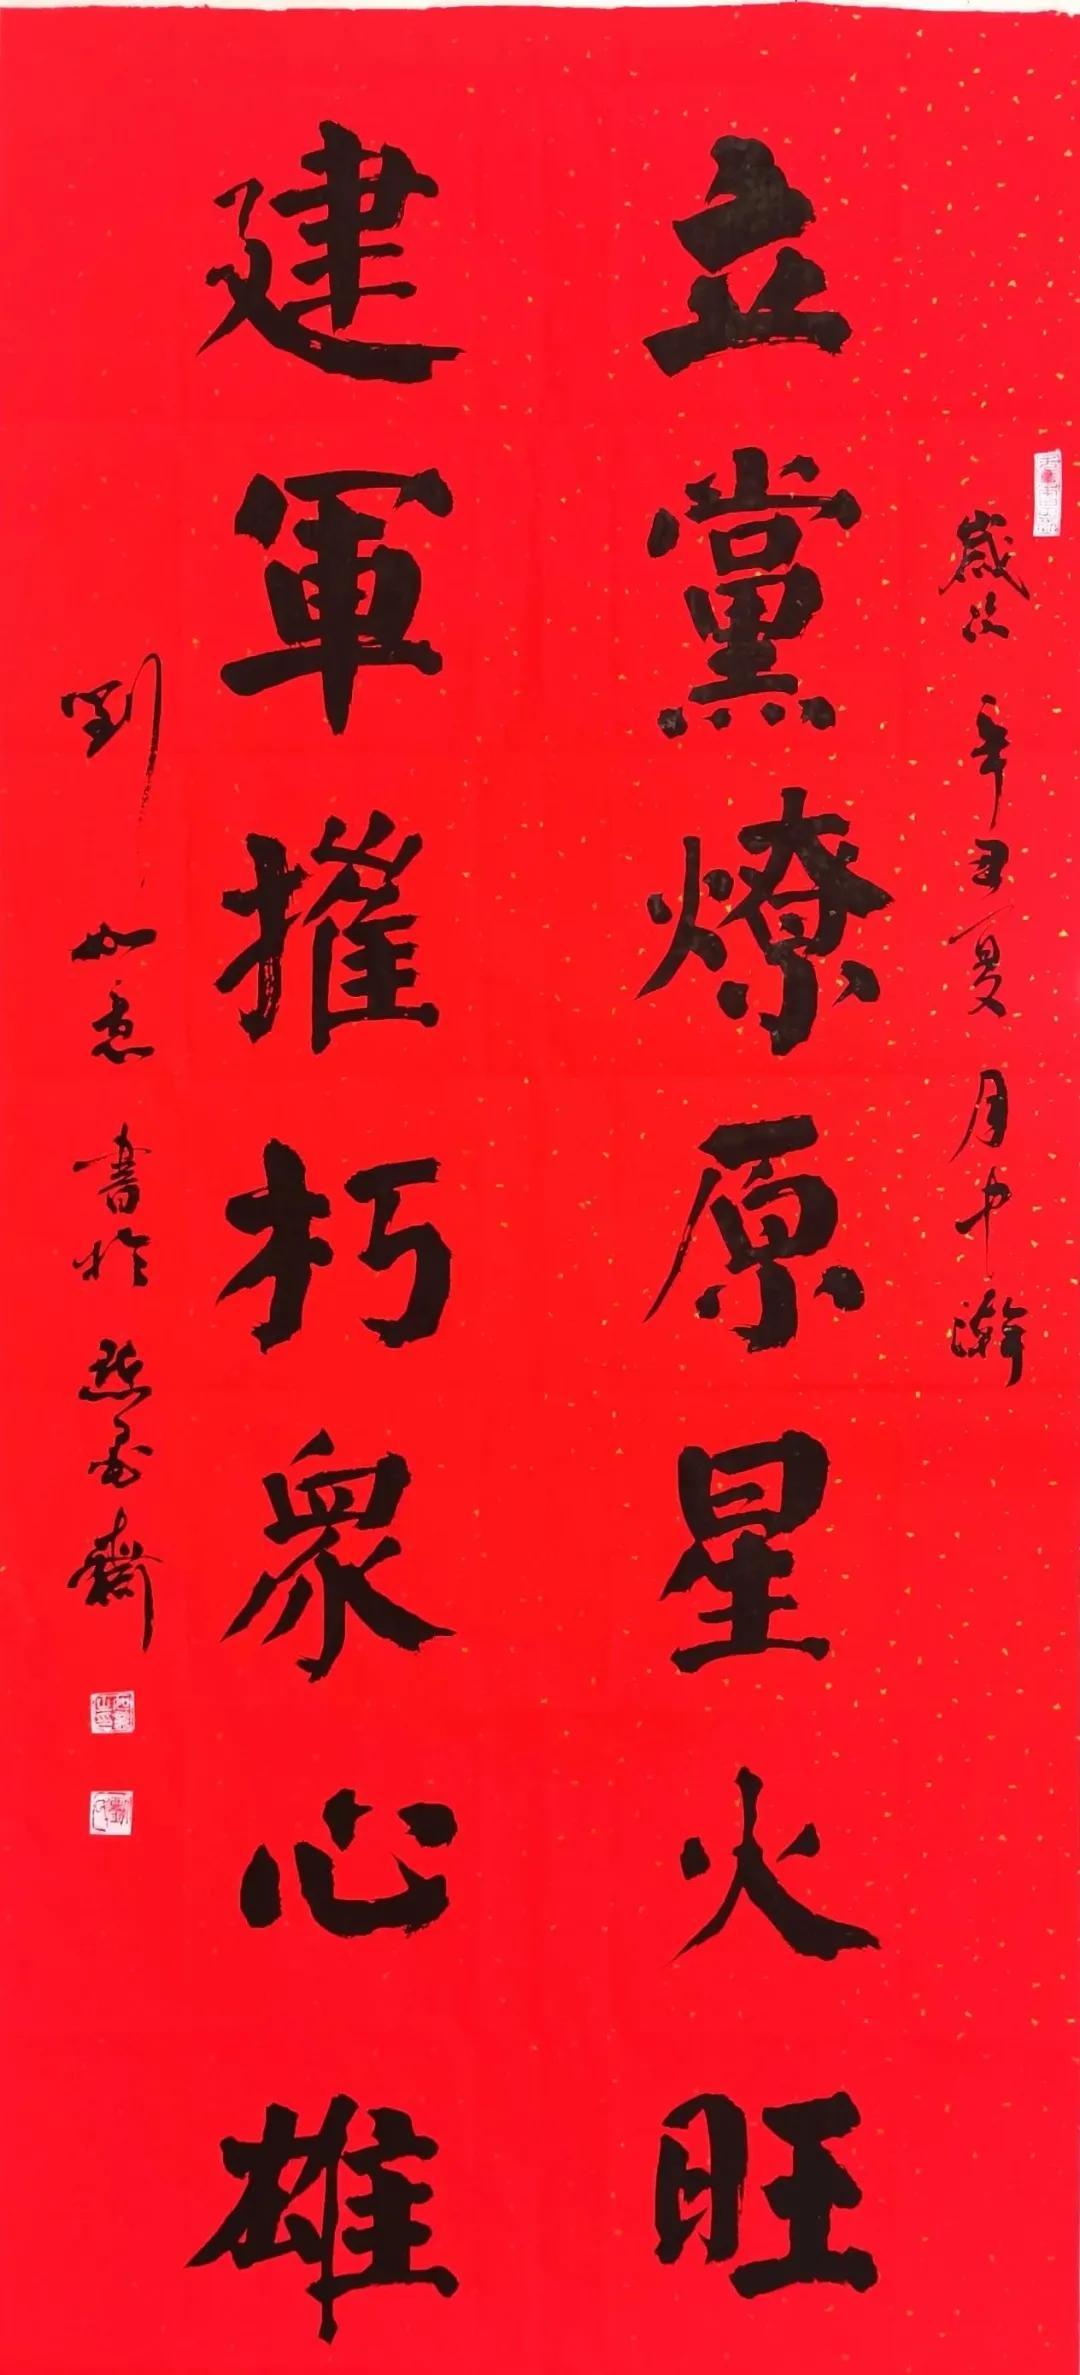 歲次辛丑夏月中澣
立黨燎原星火旺
建軍摧朽衆心雄
劉如意書於點墨齋